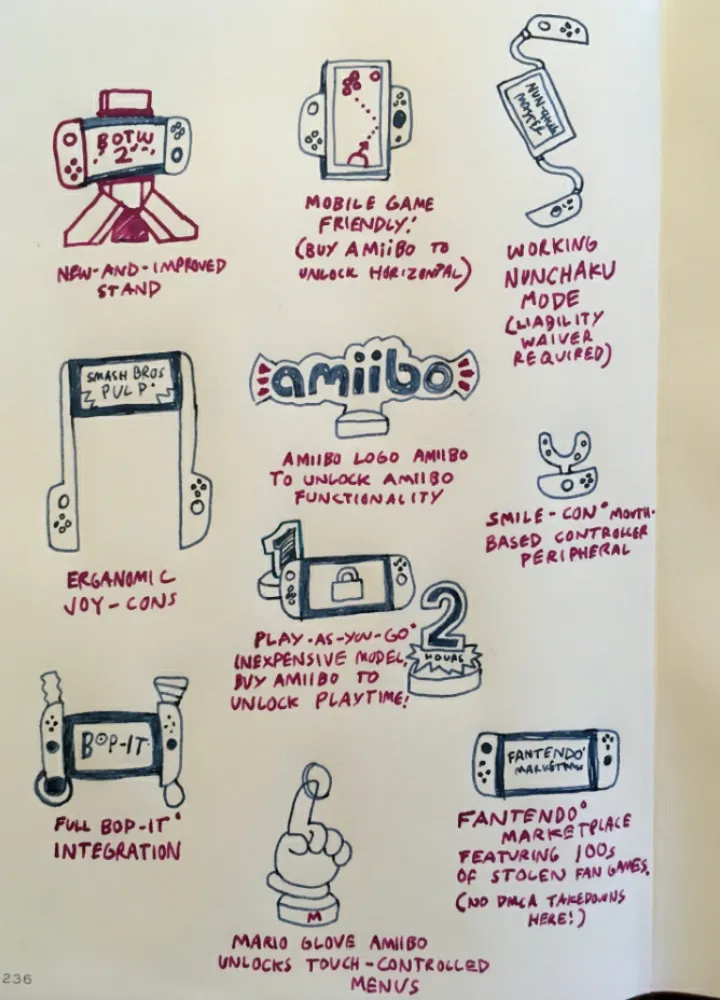 BOTW
2
NEW-AND-IMPROVED
STAND
MOBILE GAME
FRIENDLY!
(BUY AMIIBO TO
UNLOCK HORIZONTAL)
NUN-CHUK
MASTER
WORKING
NUNCHAKU
MODE
(LIABILITY
WAIVER
REQUIRED)
SMASH BROS
PULP
ERGANOMIC
JOY-CONS
amiibo
AMIIBO LOGO AMIIBO
TO UNLOCK AMIIBO
FUNCTIONALITY
SMILE-CON MOUTH-
BASED CONTROLLER
PERIPHERAL
1
2
HOURS
PLAY-AS-YOU-GO
INEXPENSIVE MODEL,
BUY AMIIBO TO
UNLOCK PLAYTIME!
BOP-IT
FULL BOP-IT
INTEGRATION
M
MARIO GLOVE AMIIBO
UNLOCKS TOUCH-CONTROLLED
MENUS
FANTENDO
FANTENDO
MARKETPLACE
FEATURING 100s
OF STOLEN FAN GAMES.
(NO DMCA TAKEDOWNS
HERE!)
236